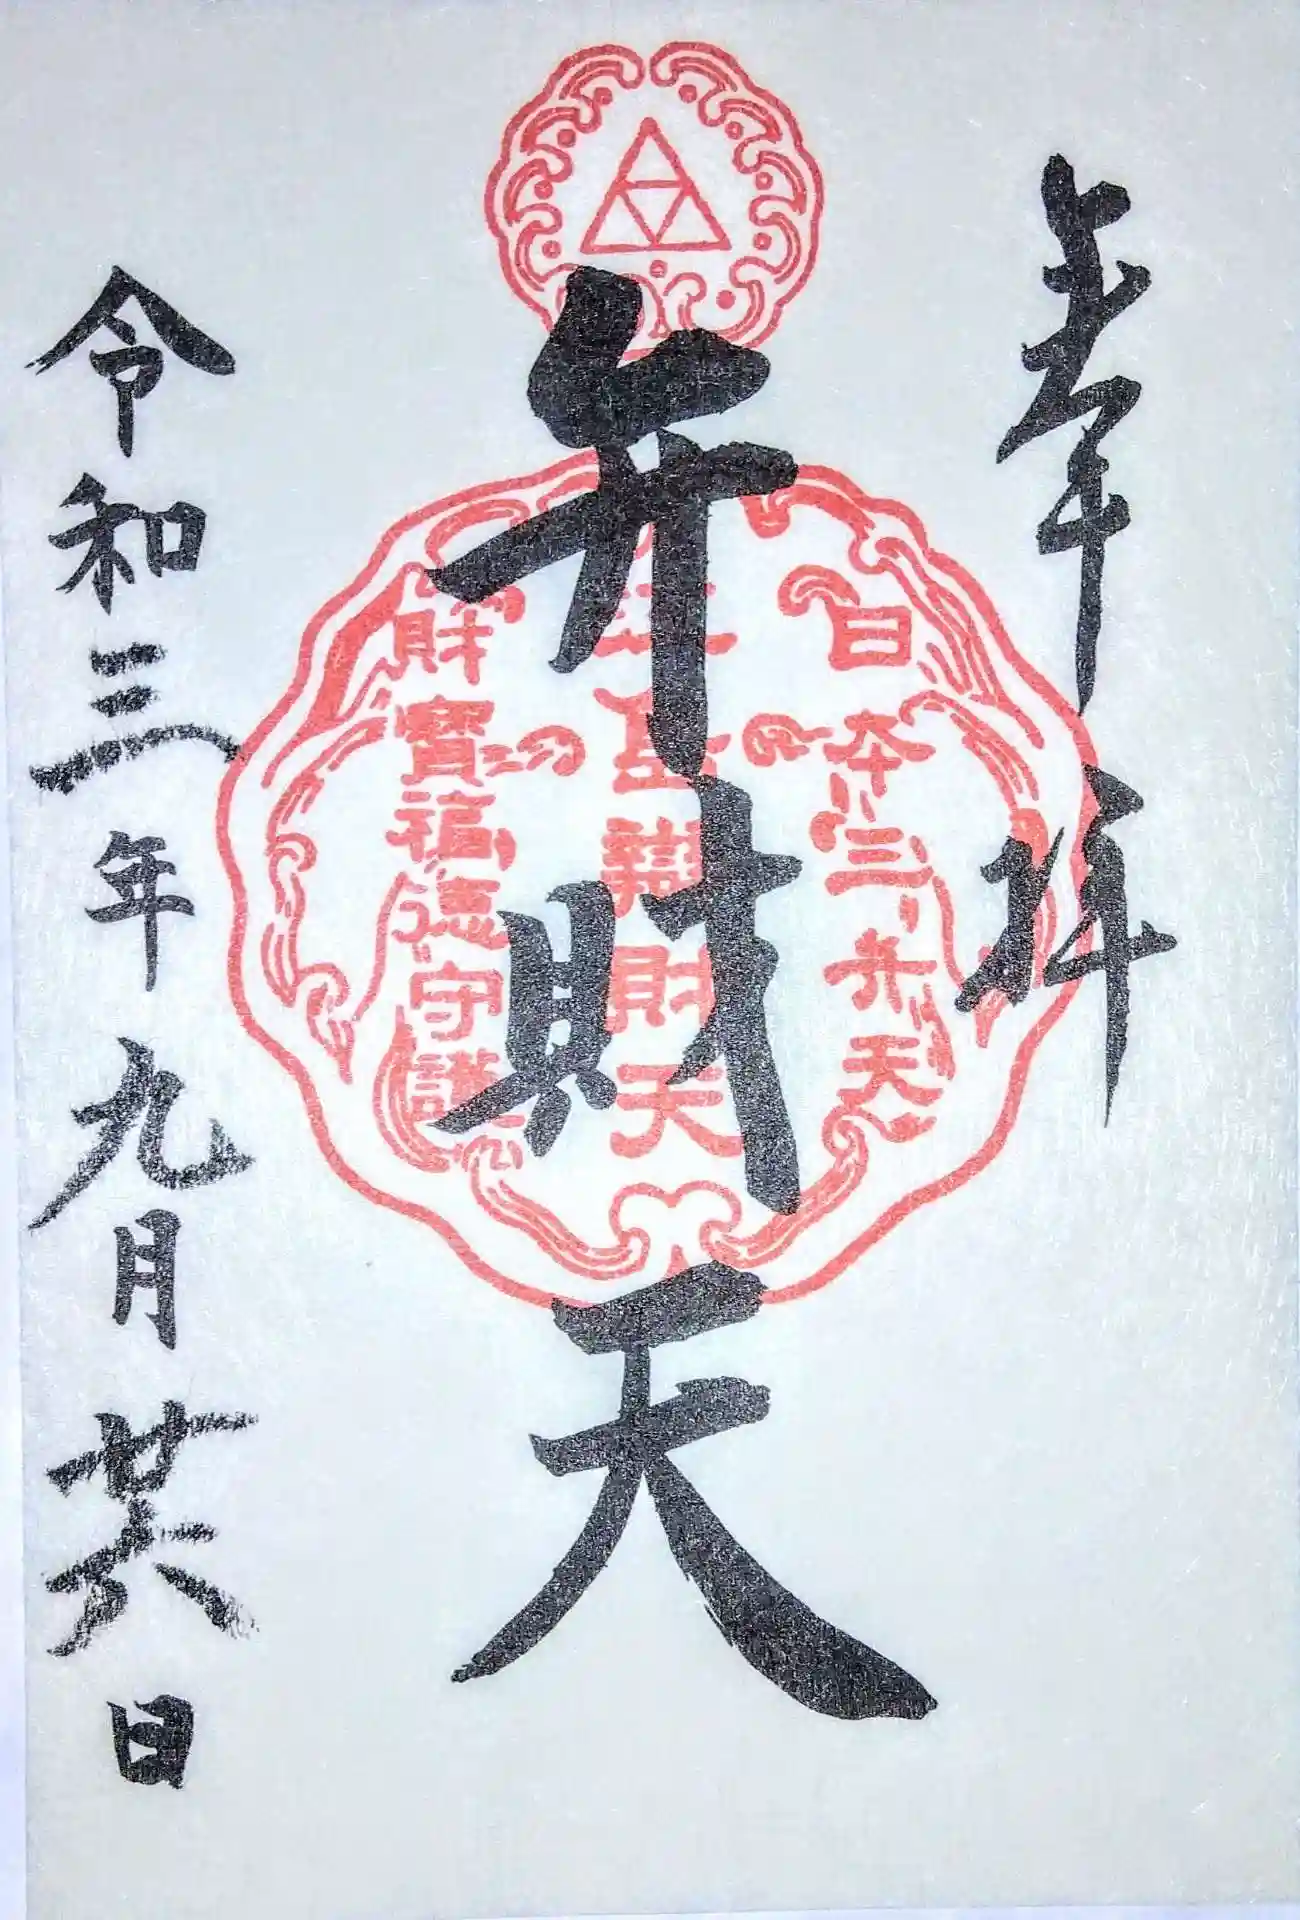 奉拝
弁財天
日本三弁天
江島辯財天
財寶福徳守護
令和三年九月廿六日